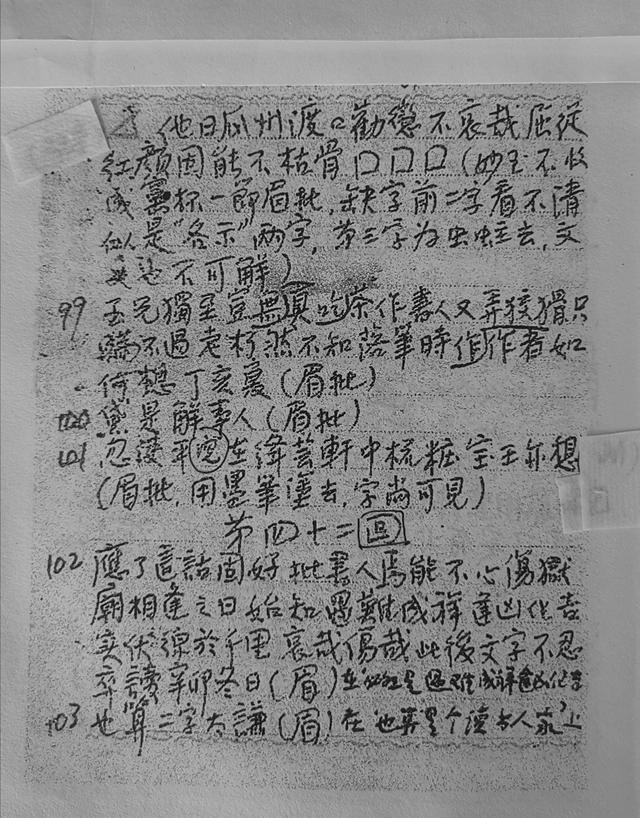 他日瓜州渡口勸懲不哀哉屈從
紅顏固能不枯骨口口口(妙玉不收
成窯杯一節眉批,缺字前二字看不清
似是“各示”兩字,第三字為虫蛀去,文
不可解)
99 玉兄獨至豈無真吃茶作書人又弄狡猾只
瞞不過老朽然不知落筆時作作者如
何想 丁亥夏(眉批)
100 黛是解事人(眉批)
101 忽使平兒在絳芸軒中梳粧宝玉亦想
(眉批,用墨筆塗去,字尚可見)
第四十二回
102 應了這話固好批書人焉能不心傷獄
廟相逢之日始知遇難成祥逢凶化吉
实伏線於千里哀哉傷哉此後文字不忍
卒讀辛卯冬日(眉)在
103 也算二字太謙(眉)在也算是个读书人家上